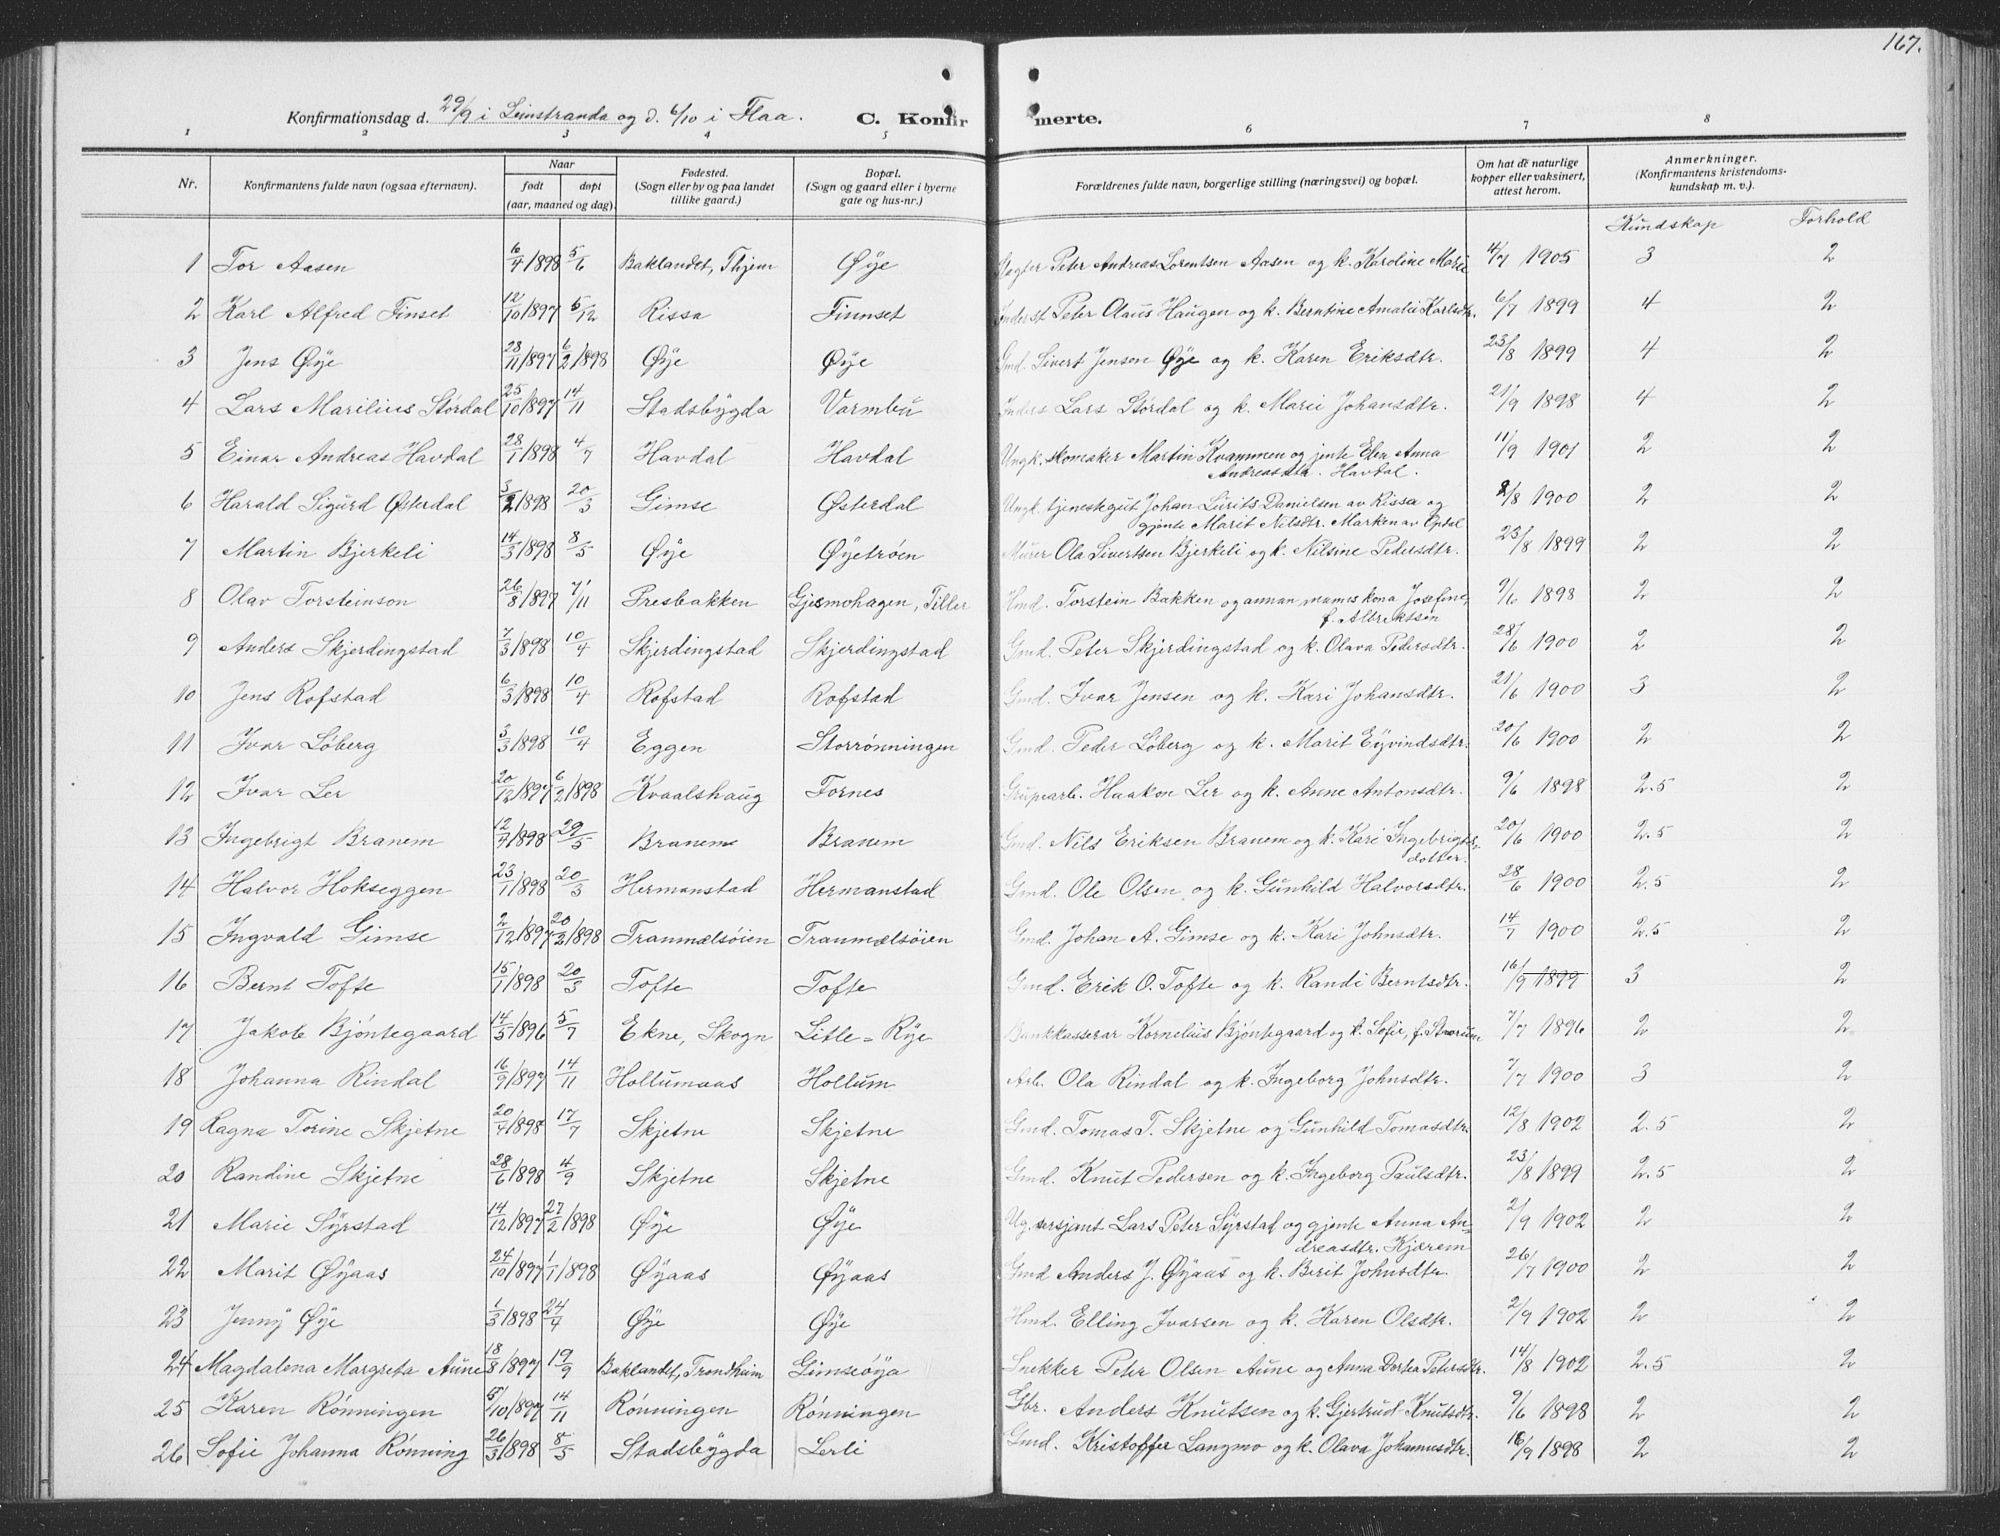 167.
Konfirmationsdag d. 29/9 i Leinstranda og d. 6/10 i Flaa. C. Konfir merte.
1 2 3 4 5 6 7 8
Nr. Konfirmantens fulde navn (ogsaa efternavn). Naar født døpt (aar, maaned og dag). Fødested. (Sogn eller by og paa landet tillike gaard.) Bopæl. (Sogn og gaard eller i byerne gate og hus-nr.) Forældrenes fulde navn, borgerlige stilling (næringsvei) og bopæl. Om hat de naturlige kopper eller vaksinert, attest herom. Anmerkninger. (Konfirmantens kristendoms- kundskap m. v.)
Kundskap Forhold
1 Tor Aasen 6/4 1898 5/6 Baklandet, Thjem Øye Peter Andreas Lorentsen Aasen og k. Karoline Marie 4/7 1905 3 2
2 Karl Alfred Finset 12/10 1897 5/12 Rissa Finnset Inderst Peter Olaus Haugen og k. Berntine Amalie Karlsdtr. 6/7 1899 4 2
3 Jens Øye 28/11 1897 6/2 1898 Øye Øye Gmd. Sivert Jenson Øye og k. Karen Eriksdtr. 23/8 1899 4 2
4 Lars Marilius Stördal 25/10 1897 14/11 Stadsbygda Varmbu Inders Lars Stördal og k. Marie Johansdtr. 21/9 1898 4 2
5 Einar Andreas Havdal 28/1 1898 4/7 Havdal Havdal Ungk. skomaker Martin Kvammen og jente Elen Anna 11/9 1901 2 2
Andreasdtr. Havdal.
6 Harald Sigurd Østerdal 3/2 1898 20/3 Gimse Østerdal Ungk. tjenestegut Johan Lurits Danielsen av Rissa og 2/8 1900 2 2
gjente Marit Nilsdtr. Marken av Opdal
7 Martin Bjerkeli 14/3 1898 8/5 Øye Øyetrøen Murer Ola Sivertsen Bjerkeli og k. Nilsine Pedersdtr. 23/8 1899 2 2
8 Olav Torsteinson 26/8 1897 7/11 Presbakken Gjesmohagen, Tiller Hmd. Torstein Bakken og annan mannes kona Josefine, 9/6 1898 2 2
f. Albrektsen
9 Anders Skjerdingstad 7/3 1898 10/4 Skjerdingstad Skjerdingstad Gmd. Peter Skjerdingstad og k. Olava Pedersdtr. 28/6 1900 2 2
10 Jens Rofstad 6/3 1898 10/4 Rofstad Rofstad Gmd. Ivar Jensen og k. Kari Johansdtr. 21/6 1900 3 2
11 Ivar Löberg 3/3 1898 10/4 Eggen Storrönningen Gmd. Peder Löberg og k. Marit Eyvindsdtr. 20/6 1900 2 2
12 Ivar Ler 20/12 1897 6/2 1898 Kvaalshaug Fornes Gruparb. Haakon Ler og k. Anne Antonsdtr. 9/6 1898 2.5 2
13 Ingebrigt Branem 12/4 1898 29/5 Branem Branem Gmd. Nils Eriksen Branem og k. Kari Ingebrigts- 20/6 1900 2.5 2
dotter.
14 Halvor Hokseggen 23/1 1898 20/3 Hermanstad Hermanstad Gmd. Ole Olsen og k. Gunhild Halvorsdtr. 28/6 1900 2.5 2
15 Ingvald Gimse 2/12 1897 20/2 1898 Traumælsöien Traumælsöien Gmd. Johan A. Gimse og k. Kari Johnsdtr. 14/7 1900 2.5 2
16 Bernt Tofte 15/1 1898 20/3 Tofte Tofte Gmd. Erik O. Tofte og k. Randi Berntsdtr. 16/9 1899 3 2
17 Jakob Bjöntegaard 14/5 1896 5/7 Ekne, Skogn Litle-Rye Bankkasserar Kornelius Bjöntegaard og k. Sofie, f. Staurum 7/7 1896 2 2
18 Johanna Rindal 16/9 1897 14/11 Hollumaas Hollum Arb. Ola Rindal og k. Ingeborg Johnsdtr. 7/7 1900 3 2
19 Ragna Torine Skjetne 20/4 1898 17/7 Skjetne Skjetne Gmd. Tomas T. Skjetne og Gunhild Tomasdtr. 12/8 1902 2.5 2
20 Randine Skjetne 28/6 1898 4/9 Skjetne Skjetne Gmd. Knut Pedersen og k. Ingeborg Paulsdtr. 23/8 1899 2.5 2
21 Marie Syrstad 14/12 1897 27/2 1898 Øye Øye Ug. sersjant Lars Peter Syrstad og gjente Anna An- 2/9 1902 2 2
dreasdtr. Kjærem
22 Marit Øyaas 24/10 1897 1/1 1898 Øyaas Øyaas Gmd Anders J. Øyaas og k. Berit Johnsdtr. 26/7 1900 2 2
23 Jenny Øye 1/3 1898 24/4 Øye Øye Hmd. Elling Ivarsen og k. Karen Olsdtr. 2/9 1902 2 2
24 Magdalena Margreta Aune 18/8 1897 19/9 Baklandet, Trondheim Gimseöya Snekker Peter Olsen Aune og Anna Dortea Petersdtr. 14/8 1902 2.5 2
25 Karen Rönningen 5/10 1897 14/11 Rönningen Rönningen Gbr. Anders Knutsen og k. Gjertrud Knutsdtr. 9/6 1898 2 2
26 Sofie Johanna Rönning 26/3 1898 8/5 Stadsbygda Lerli Gmd. Kristoffer Langmo og k. Olava Johannesdtr. 16/9 1898 2 2